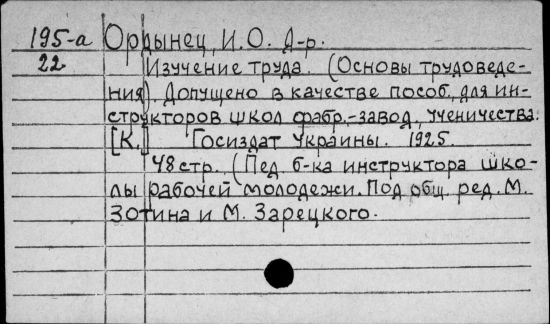 195-а Орынец, И.О. Д-р.
22 Изучение труда. (Основы трудоведе-
ния). Допущено в качестве пособ. для ин-
структоров школ фабр.-завод. ученичества.
[К.] Госиздат Украины. 1925.
48 стр. (Пед. б-ка инструктора шко-
лы рабочей молодежи. Под общ. ред. М.
Зотина и М. Зарецкого.